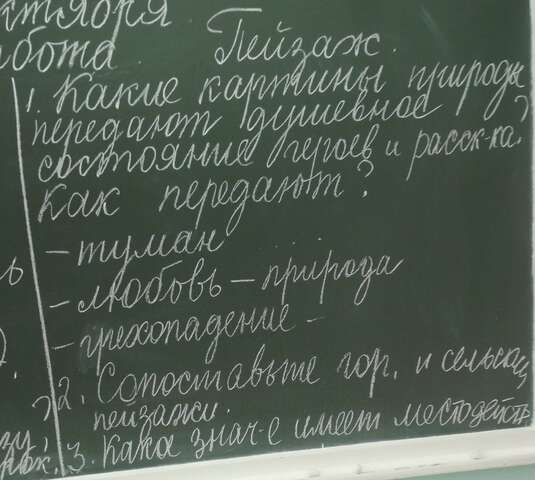 ктября
бота Пейзаж.
1. Какие картины природы
передают душевное
состояние героев и расск-ка?
Как передают?
– туман
ь
– любовь – природа
– грехопадение –
2. Сопоставьте гор. и сельский
пейзажи.
3. Како знач-е имеет